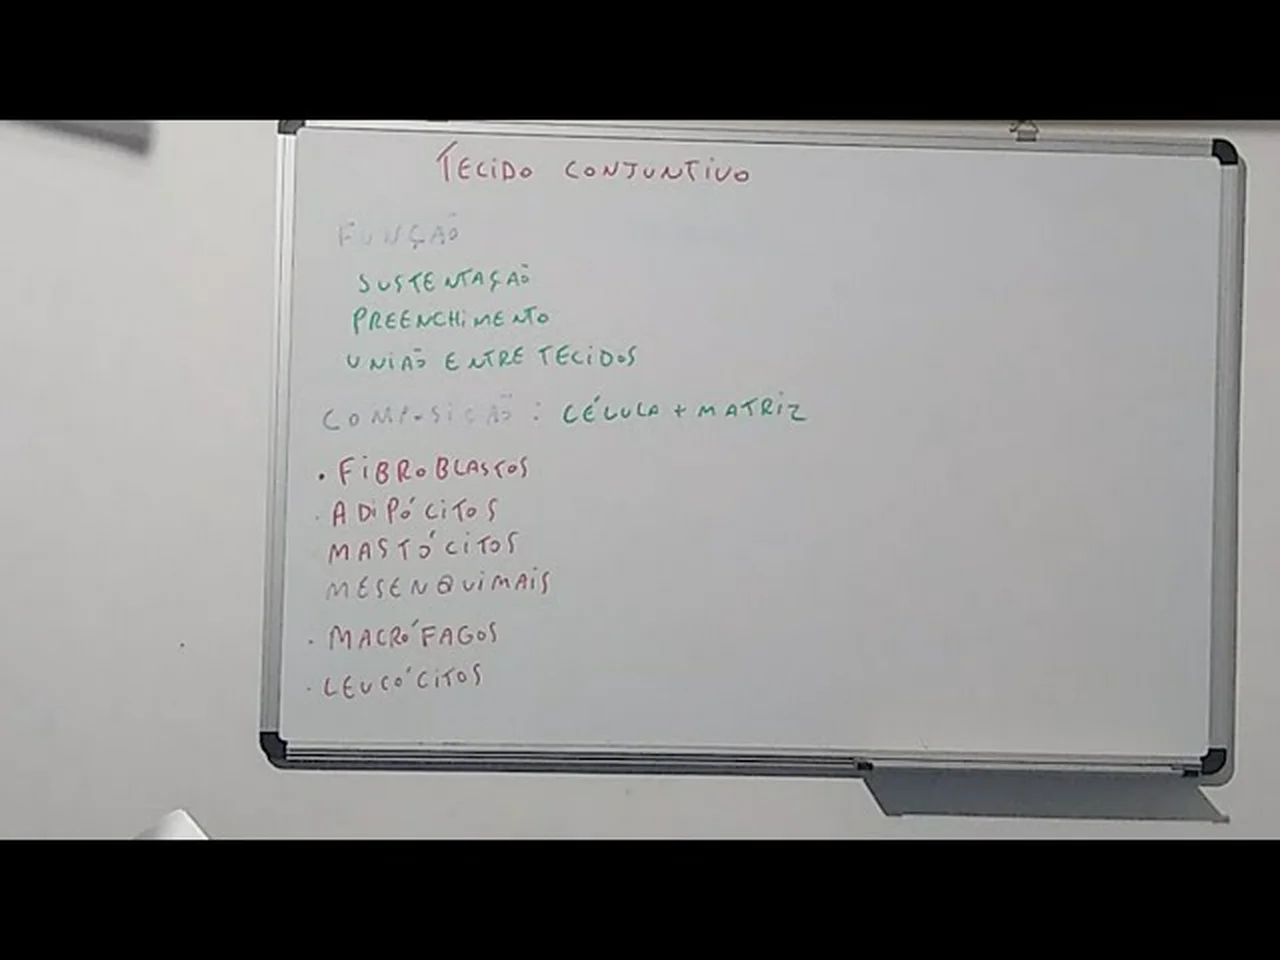 TECIDO CONJUNTIVO
FUNÇÃO
SUSTENTAÇÃO
PREENCHIMENTO
UNIÃO ENTRE TECIDOS
COMPOSIÇÃO : CÉLULA + MATRIZ
• FIBROBLASTOS
· ADIPÓCITOS
MASTÓCITOS
MESENQUIMAIS
· MACRÓFAGOS
· LEUCÓCITOS